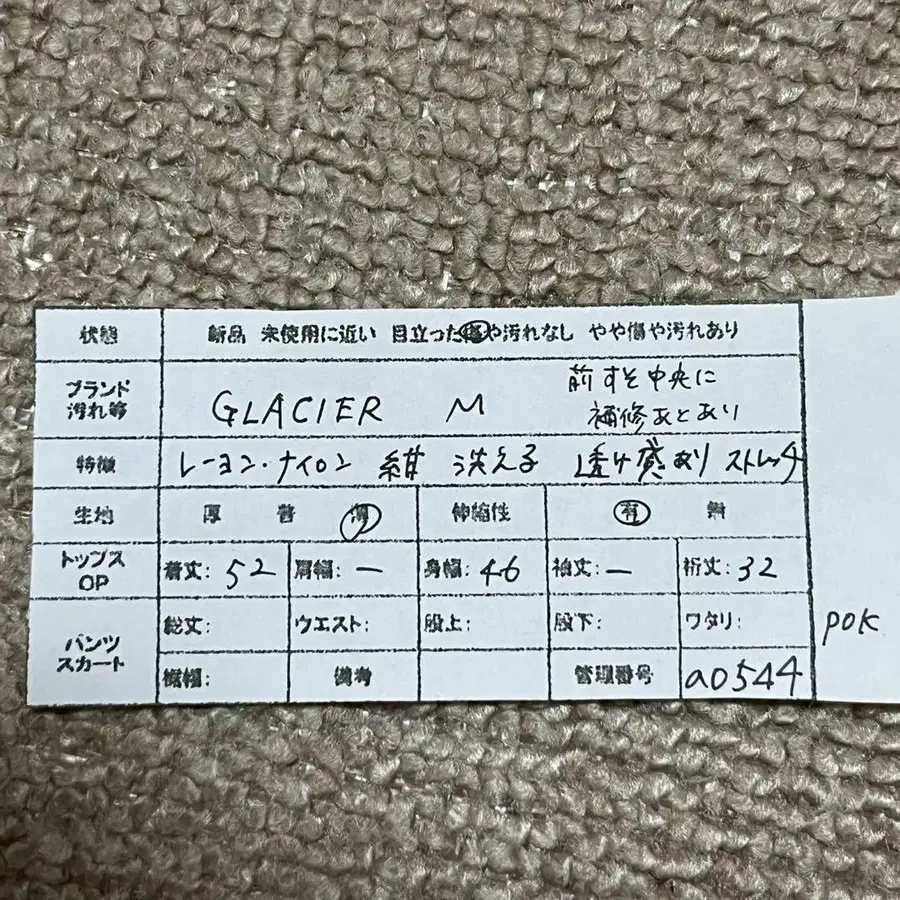 状態 新品 未使用に近い 目立った傷や汚れなし やや傷や汚れあり
ブランド
汚れ等 GLACIER M 前すそ中央に
補修あとあり
特徴 レーヨン・ナイロン 紺 洗える 透け感あり ストレッチ
生地 厚 普 薄 伸縮性 有 無
トップス
OP 着丈: 52 肩幅: ー 身幅: 46 袖丈: ー 裄丈: 32
パンツ
スカート 総丈: ウエスト: 股上: 股下: ワタリ:
裾幅: 備考 管理番号 a0544
POK